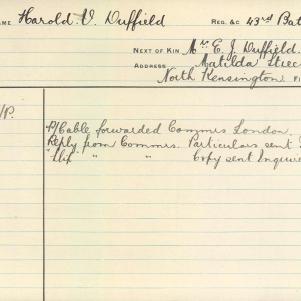 AME Harold. V. Duffield REG. &C 43rd Bat
NEXT OF KIN Mr. E. J. Duffield.
ADDRESS Matilda Stree
North Kensington. FI
/P.
P/Cable forwarded Commrs London.
Reply from Commrs. Particulars sent
" " Copy sent Inquire